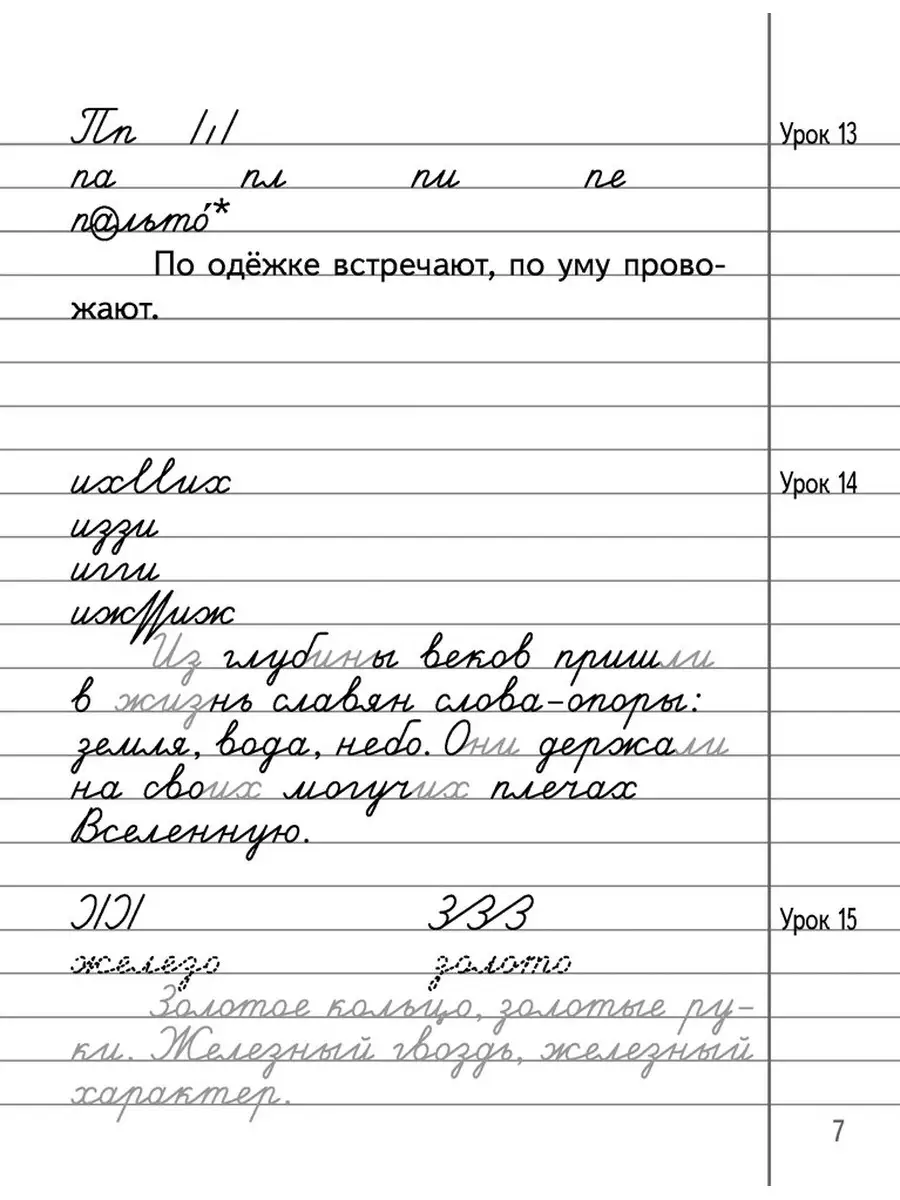 Пп
Урок 13
па пл пи пе
пальто́*
По одёжке встречают, по уму прово-
жают.
Урок 14
иззи
игги
Из глубины веков пришли
в жизнь славян слова-опоры:
земля, вода, небо. Они держали
на своих могучих плечах
Вселенную.
З З З
Урок 15
железо золото
Золотое кольцо, золотые ру-
ки. Железный гвоздь, железный
характер.
7